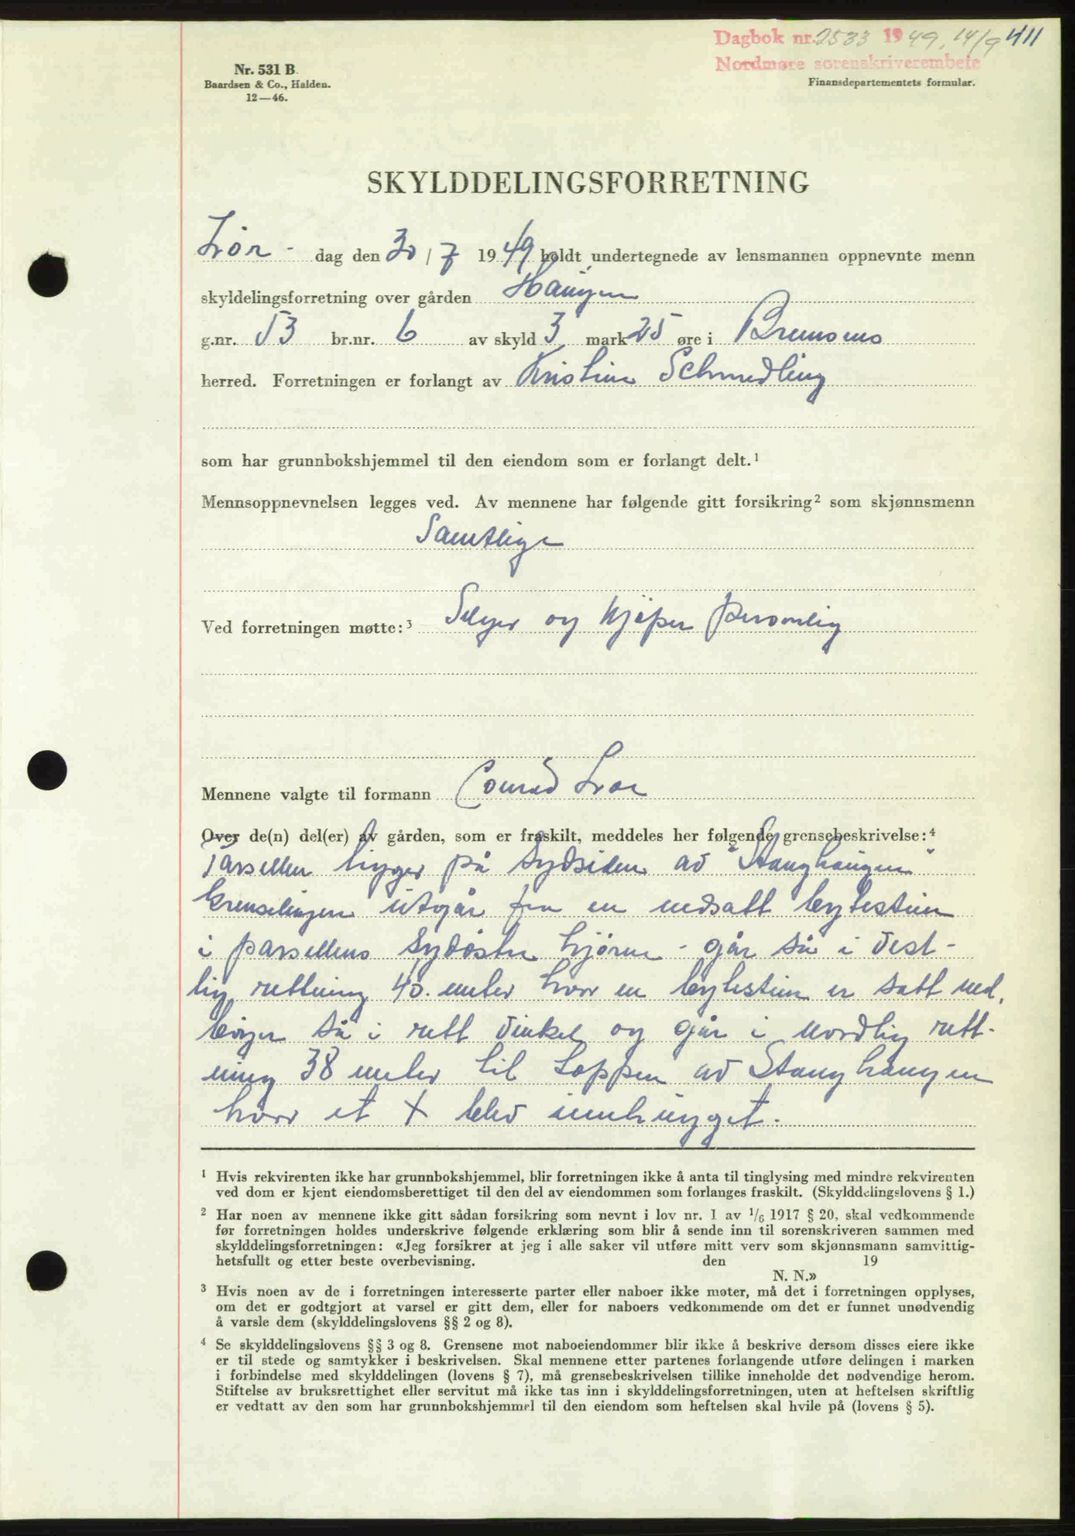 Dagbok nr. 2533 1949, 14/9 411
Nordmøre sorenskriverembete
Nr. 531 B.
Baardsen & Co., Halden.
12—46.
Finansdepartementets formular.
SKYLDDELINGSFORRETNING
Lør- dag den 30 / 7 1949 holdt undertegnede av lensmannen oppnevnte menn
skyldelingsforretning over gården Haugen
g.nr. 53 br.nr. 6 av skyld 3 mark 25 øre i Bremsnes
herred. Forretningen er forlangt av Kristine Schmedling
som har grunnbokshjemmel til den eiendom som er forlangt delt.¹
Mennsoppnevnelsen legges ved. Av mennene har følgende gitt forsikring² som skjønnsmenn
Samtlige
Ved forretningen møtte:³ Selger og kjøper personlig
Mennene valgte til formann Conrad
Over de(n) del(er) av gården, som er fraskilt, meddeles her følgende grensebeskrivelse:⁴
Parsellen ligger på Sydsiden av "Stanghaugen"
Grenselinjen utgår fra en nedsatt bytestein
i parsellens sydøstre hjørne - går så i vest-
lig rettning 40. meter hvor en bytestein er satt ned,
bøyer så i rett vinkel og går i nordlig rett-
ning 38 meter til toppen av Stanghaugen
hvor et + blev innhugget.
¹ Hvis rekvirenten ikke har grunnbokshjemmel, blir forretningen ikke å anta til tinglysing med mindre rekvirenten
ved dom er kjent eiendomsberettiget til den del av eiendommen som forlanges fraskilt. (Skylddelingslovens § 1.)
² Har noen av mennene ikke gitt sådan forsikring som nevnt i lov nr. 1 av 1/6 1917 § 20, skal vedkommende
før forretningen holdes underskrive følgende erklæring som blir å sende inn til sorenskriveren sammen med
skylddelingsforretningen: «Jeg forsikrer at jeg i alle saker vil utføre mitt verv som skjønnsmann samvittig-
hetsfullt og etter beste overbevisning. den 19
N. N.»
³ Hvis noen av de i forretningen interesserte parter eller naboer ikke møter, må det i forretningen opplyses,
om det er godtgjort at varsel er gitt dem, eller for naboers vedkommende om det er funnet unødvendig
å varsle dem (skylddelingslovens §§ 2 og 8).
⁴ Se skylddelingslovens §§ 3 og 8. Grensene mot naboeiendommer blir ikke å beskrive dersom disses eiere ikke
er til stede og samtykker i beskrivelsen. Skal mennene etter partenes forlangende utføre delingen i marken
i forbindelse med skylddelingen (lovens § 7), må grensebeskrivelsen tillike inneholde det nødvendige herom.
Stiftelse av bruksrettighet eller servitut må ikke tas inn i skylddelingsforretningen, uten at heftelsen skriftlig
er vedtatt av den som har grunnbokshjemmel til den eiendom som heftelsen skal hvile på (lovens § 5).